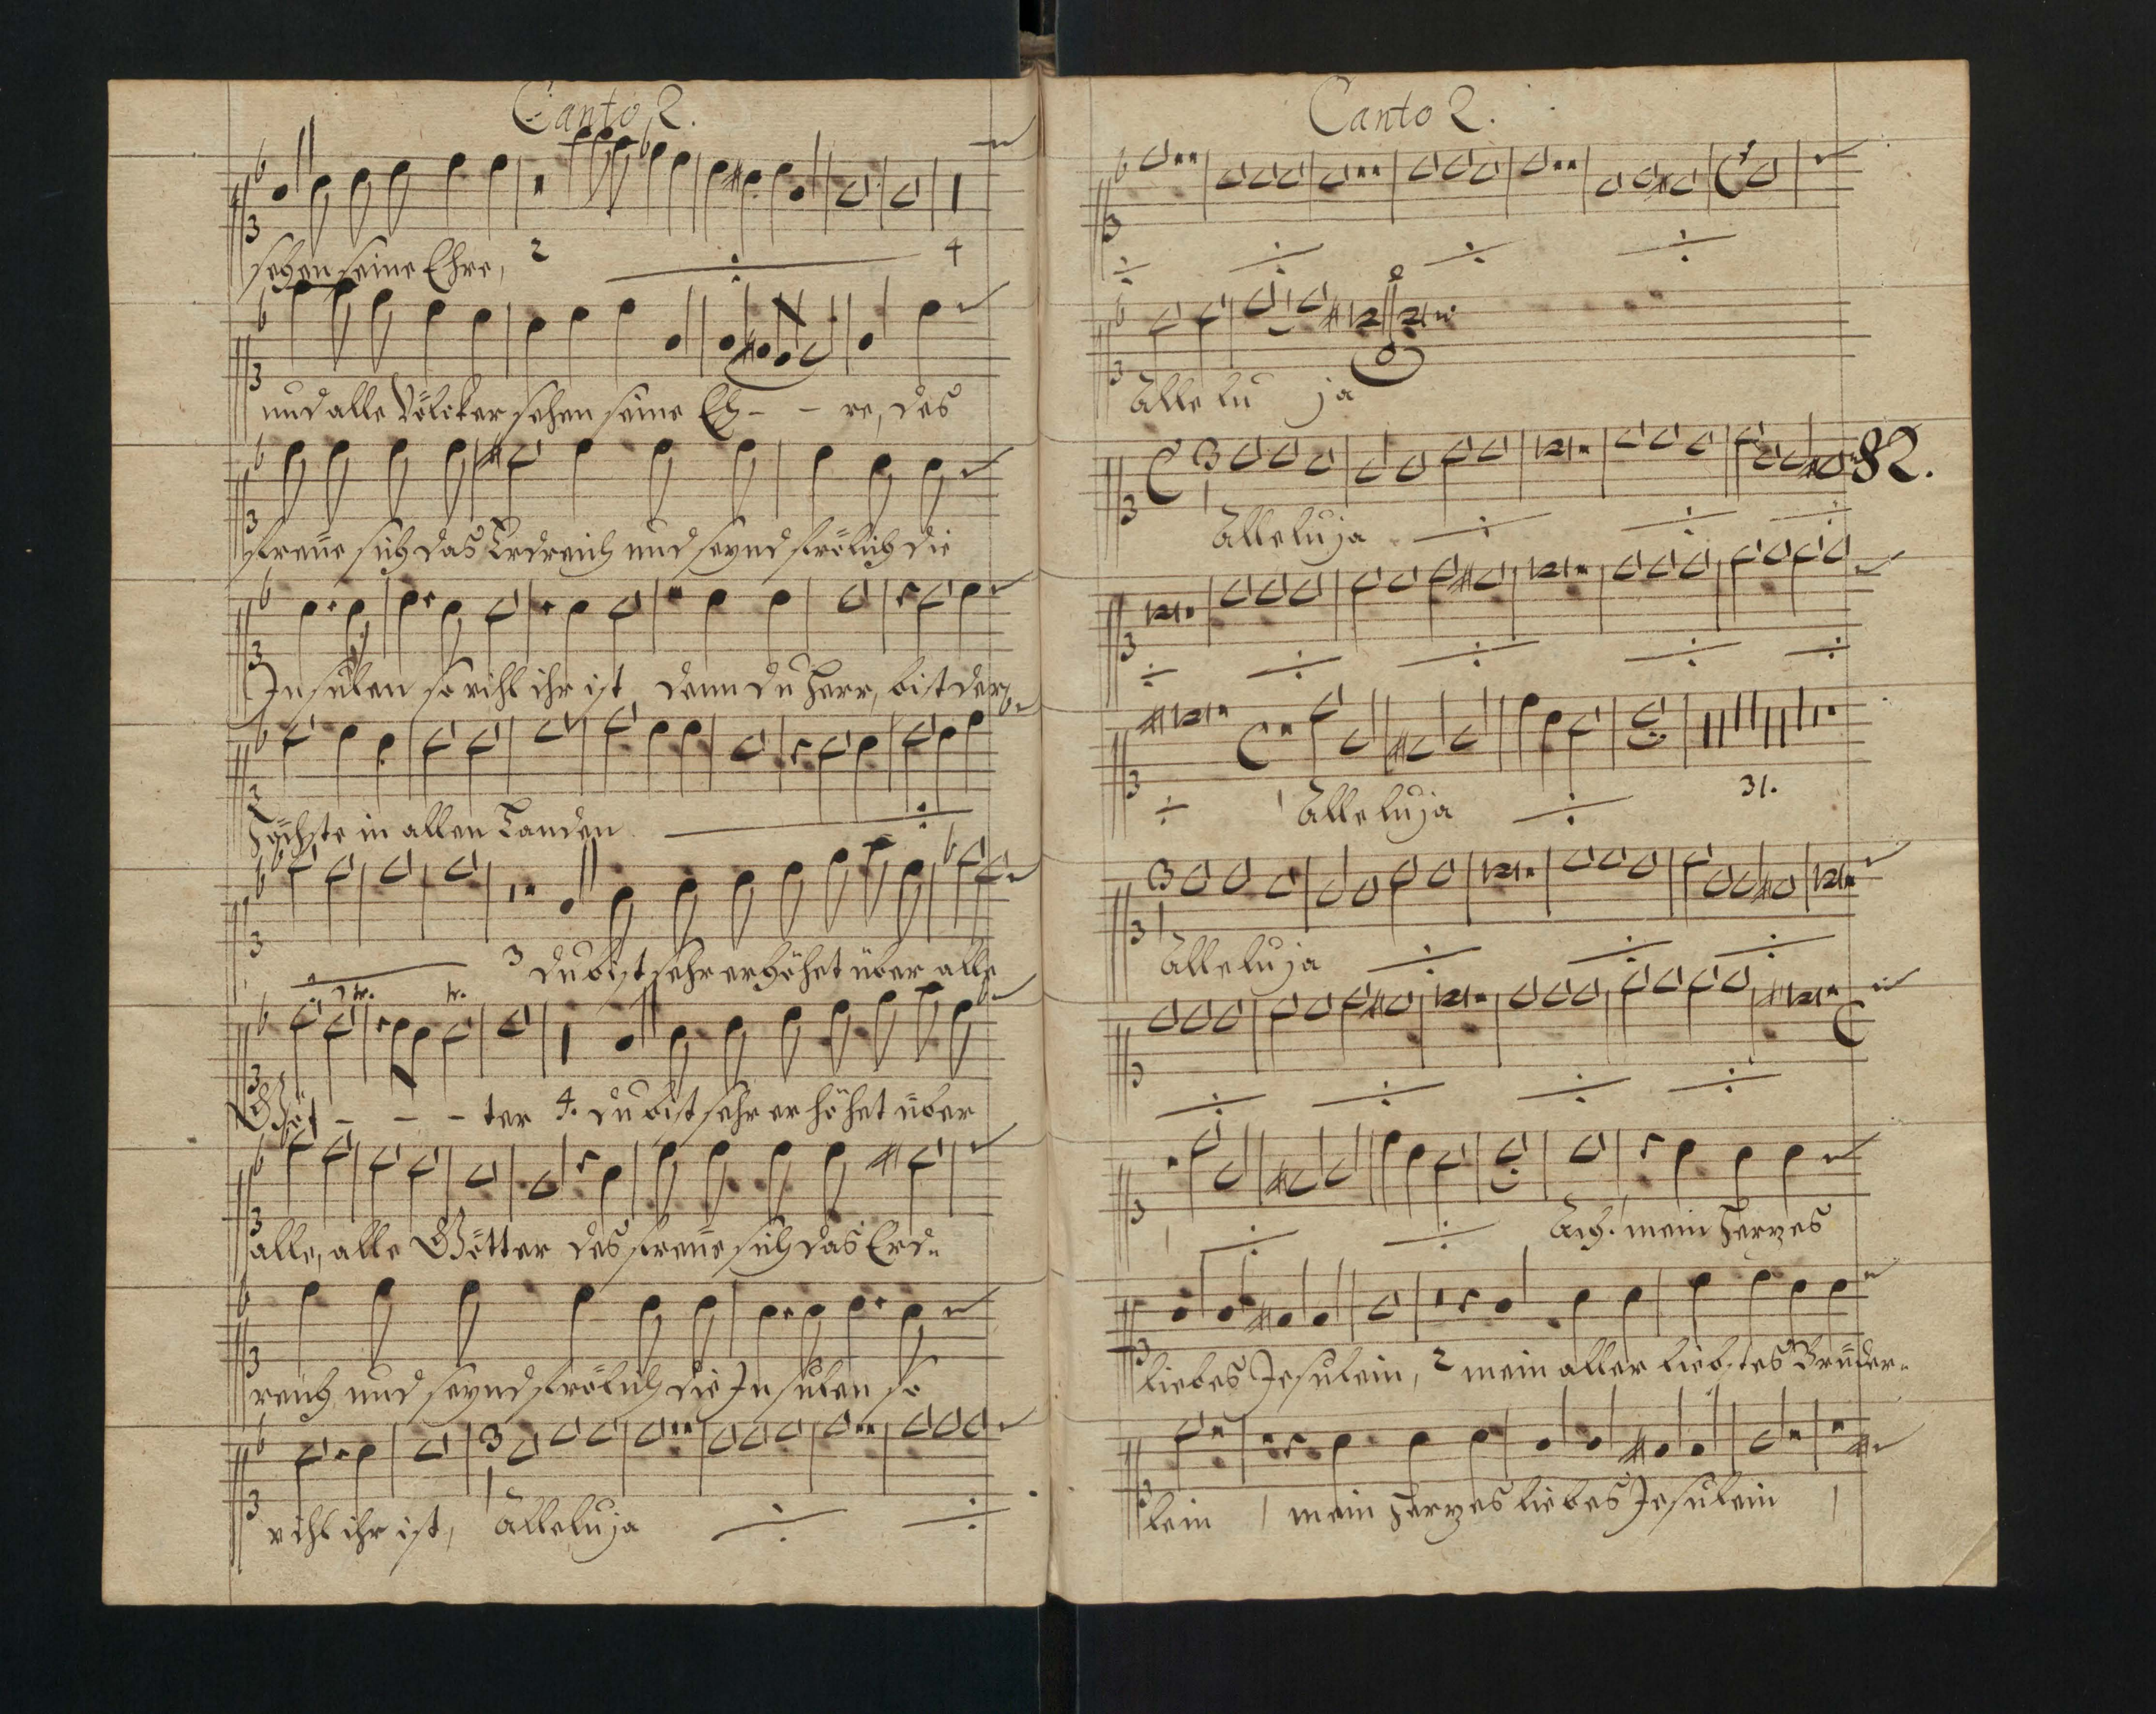 Canto 2.
sehen seine Ehre, 2 4
und alle Völcker sehen seine Eh - - re, des
freüe sich das Erdreich und seynd frölich die
Insulen so vihl ihr ist denn du Herr, bist der
Höchste in allen Landen
3 du bist sehr erhöhet über alle
Göt - - - ter 4. du bist sehr erhöhet über
alle, alle Götter des freüe sich das Erd-
reich und seynd frölich die Insulen so
vihl ihr ist, Alleluja
Canto 2.
Alle lu ja
82.
Alleluja
Alleluja 31.
Alleluja
Ach mein Herzes
liebes Jesulein, 2 mein aller liebstes Brüder-
lein mein Herzes liebes Jesulein